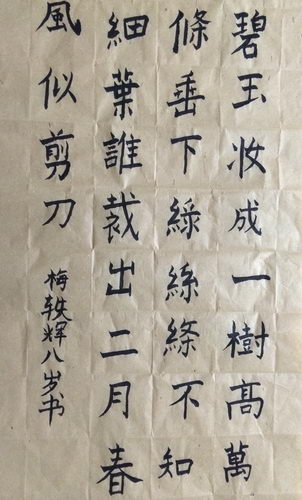 碧玉妆成一樹高萬
條垂下綠絲絛不知
細葉誰裁出二月春
風似剪刀
梅轶辉八岁书